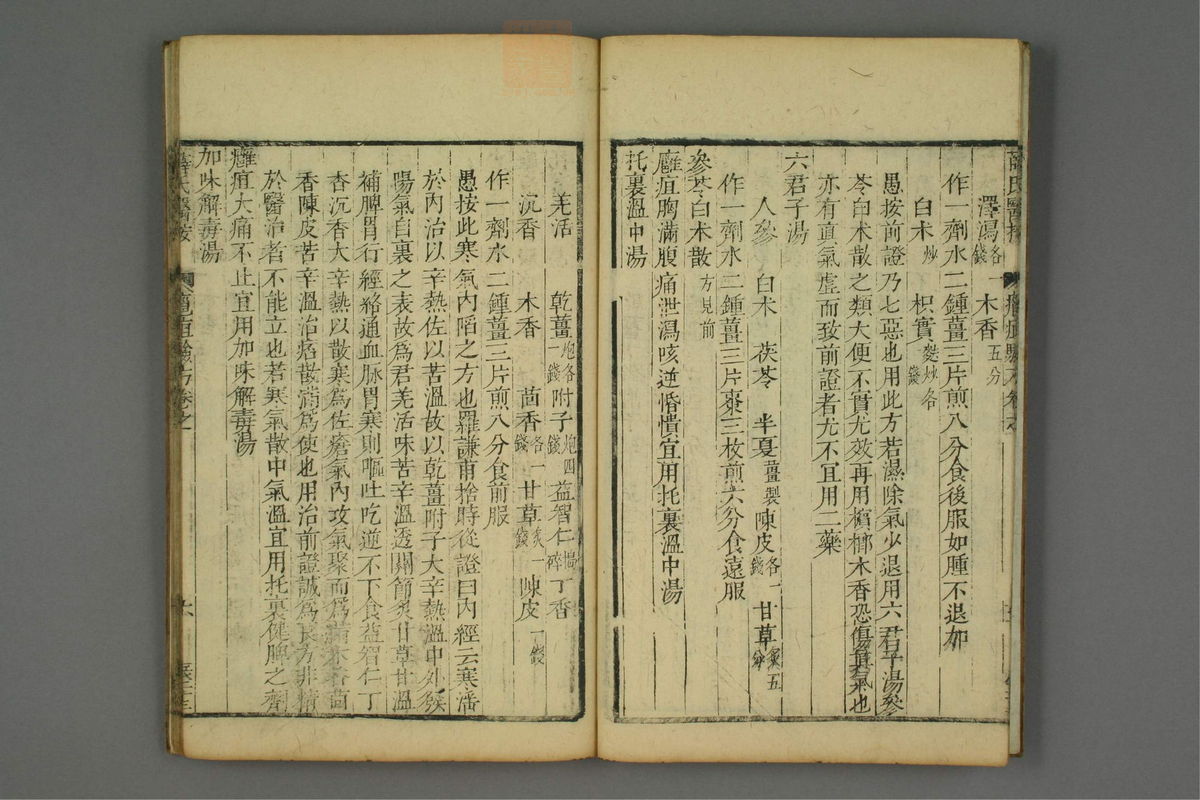 澤瀉各錢 木香五分
作一劑水二鍾薑三片煎八分食後服如腫不退加
白朮炒 枳實麩炒各錢
愚按前證乃七惡也用此方若濕除氣少退用六君子湯參
苓白朮散之類大便不實尤效再用檳榔木香恐傷真氣也
亦有直氣虛而致前證者尤不宜用二藥
六君子湯
人參 白朮 茯苓 半夏薑製 陳皮各一錢 甘草炙五分
作一劑水二鍾薑三片棗三枚煎六分食遠服
參苓白朮散方見前
癰疽胸滿腹痛泄瀉咳逆惛憒宜用托裏溫中湯
托裏溫中湯
羌活 乾薑炮各一錢 附子炮四錢 益智仁搗碎 丁香
沉香 木香 茴香各一錢 甘草炙一錢 陳皮一錢
作一劑水二鍾薑三片煎八分食前服
愚按此寒氣內陷之方也羅謙甫捨時從證曰內經云寒滛
於內治以辛熱佐以苦溫故以乾薑附子大辛熱溫中外發
陽氣自裏之表故為君羌活味苦辛溫透關節炙甘草甘溫
補脾胃行經絡通血脉胃寒則嘔吐吃逆不下食益智仁丁
香沉香大辛熱以散寒為佐瘡氣內攻氣聚而為滿木香茴
香陳皮苦辛溫治痞散滿為使也用治前證誠為良方非精
於醫治者不能立也若寒氣散中氣溫宜用托裏健脾之劑
癰疽大痛不止宜用加味解毒湯
加味解毒湯
薛氏醫按 癰疽驗方卷之一